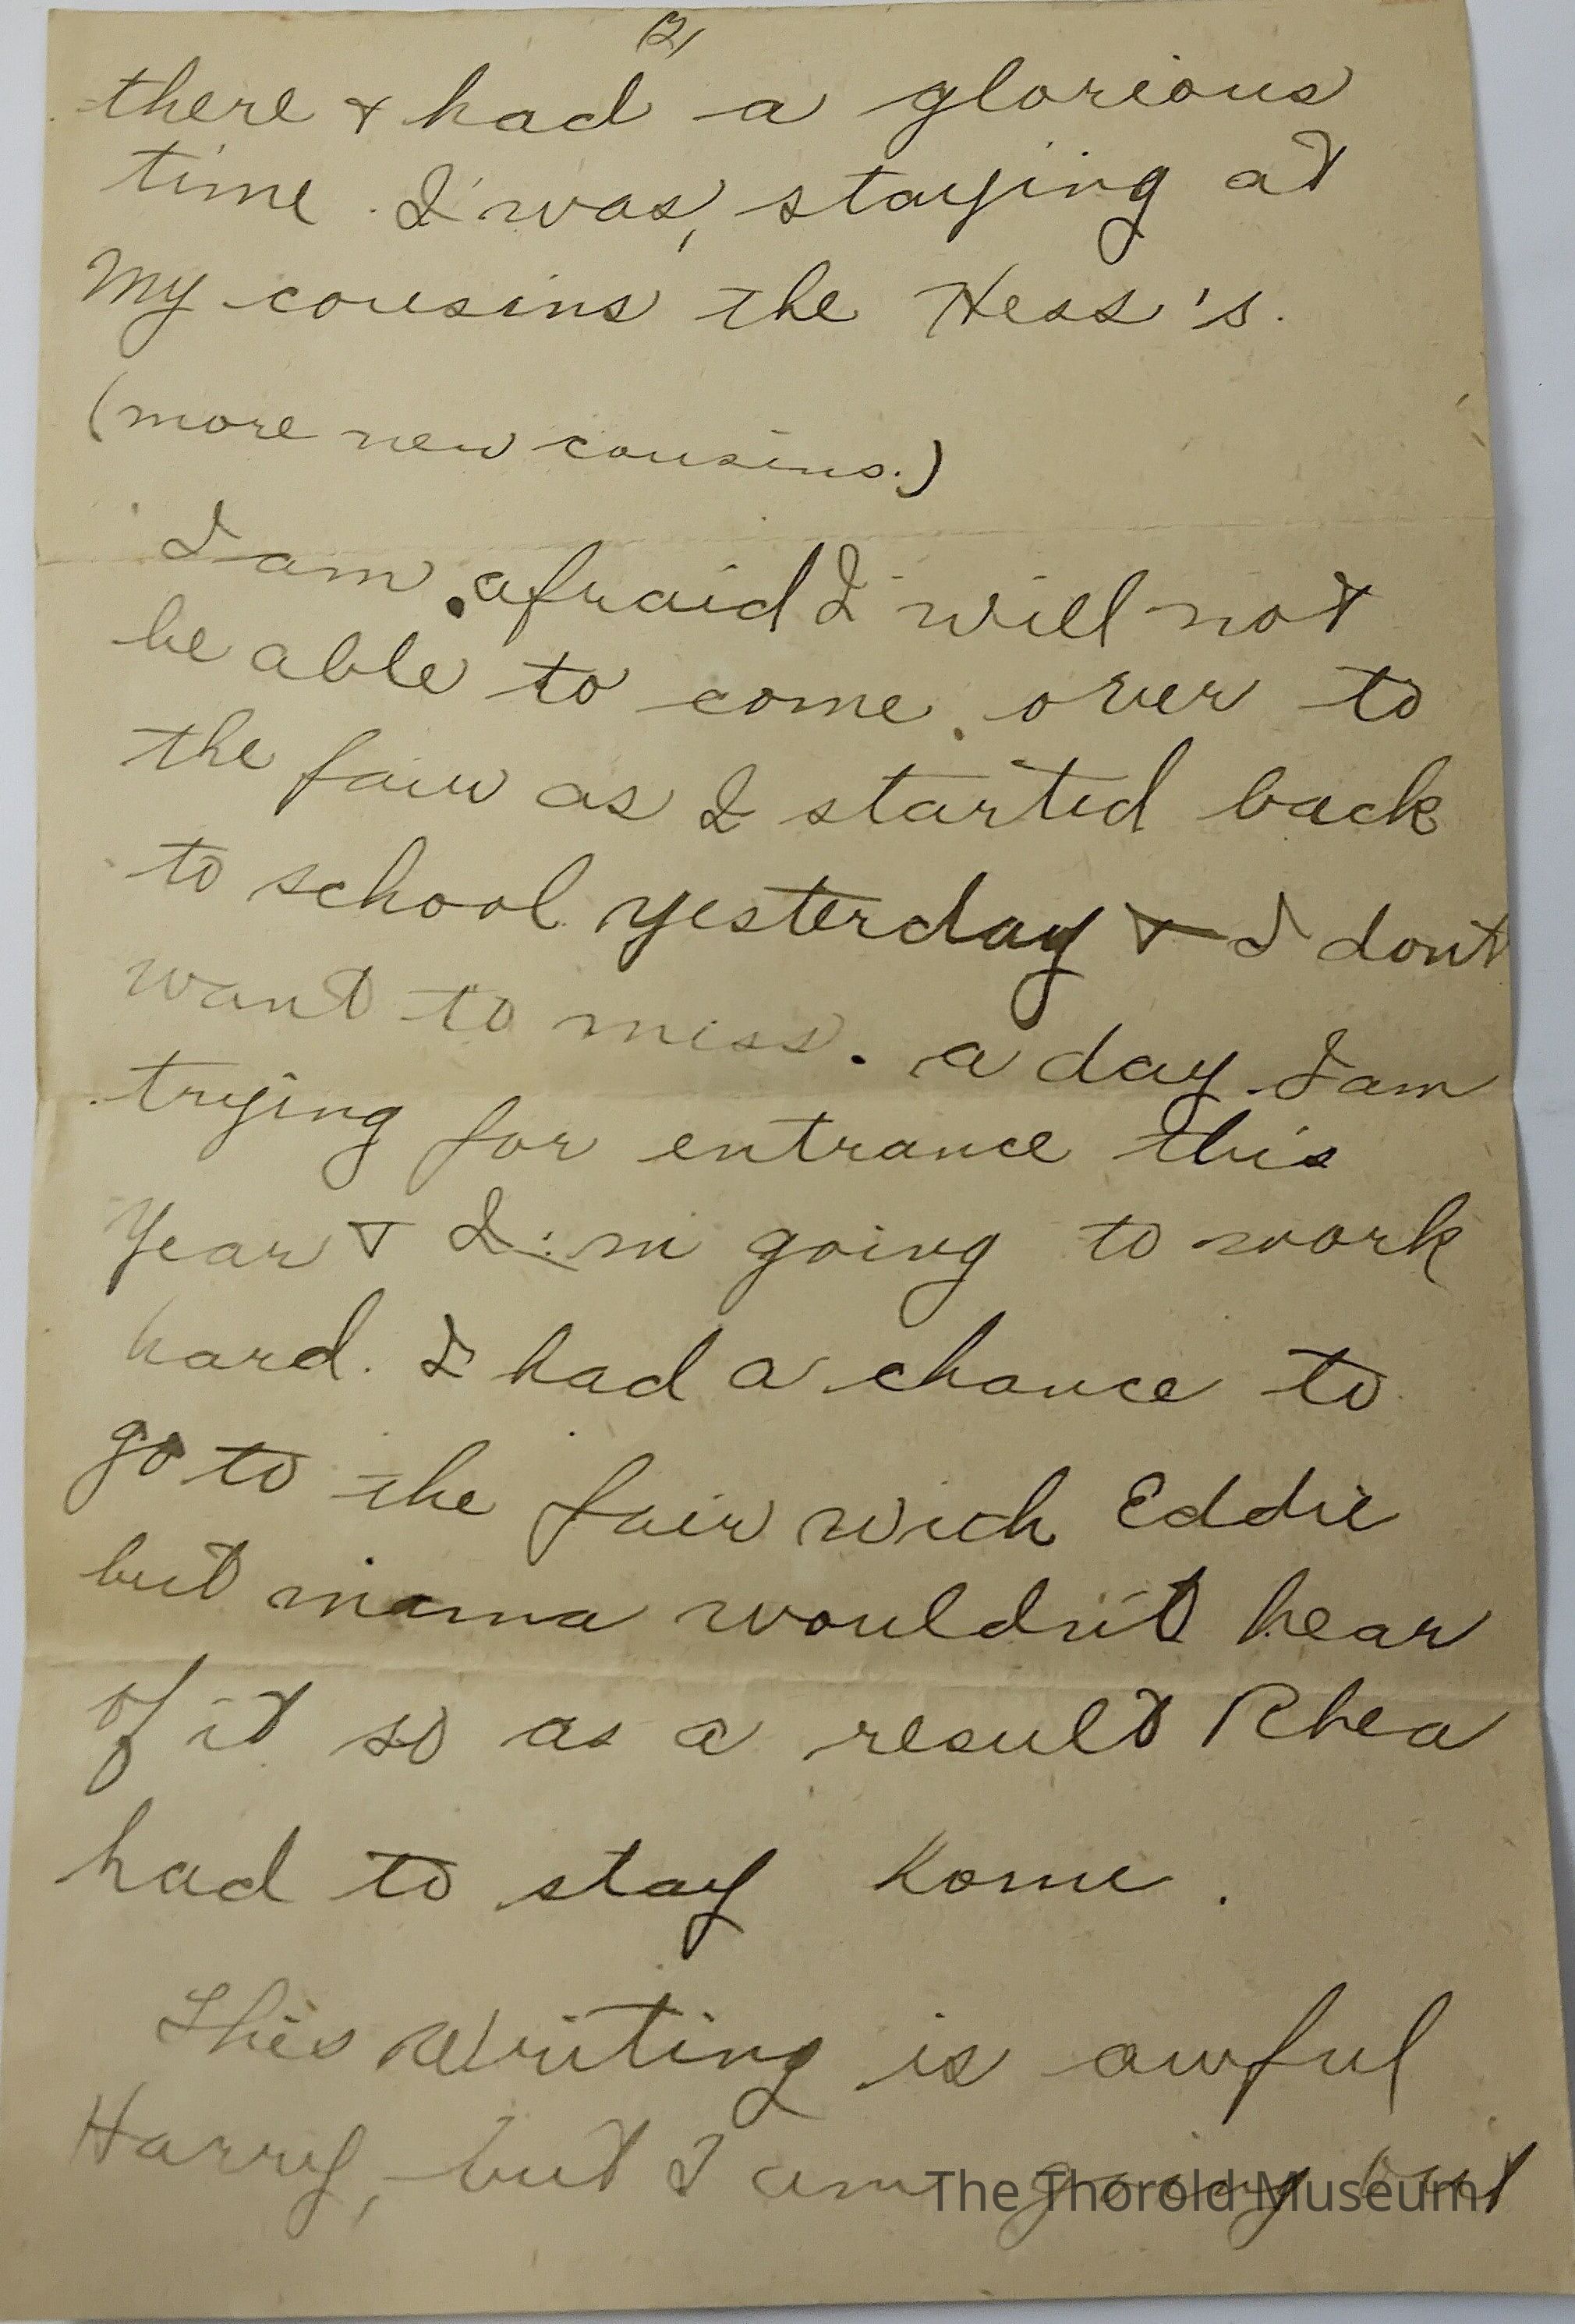 (2)
there & had a glorious
time. I was, staying at
My cousins the Hess's.
(more new cousins.)
I am afraid I will not
be able to come over to
the fair as I started back
to school yesterday & I dont
want to miss. a day. I am
trying for entrance this
Year & I'm going to work
hard. I had a chance to
go to the fair with Eddie
but mama wouldn't hear
of it so as a result Rhea
had to stay home.
This writing is awful
Harry, but I am going out
The Thorold Museum